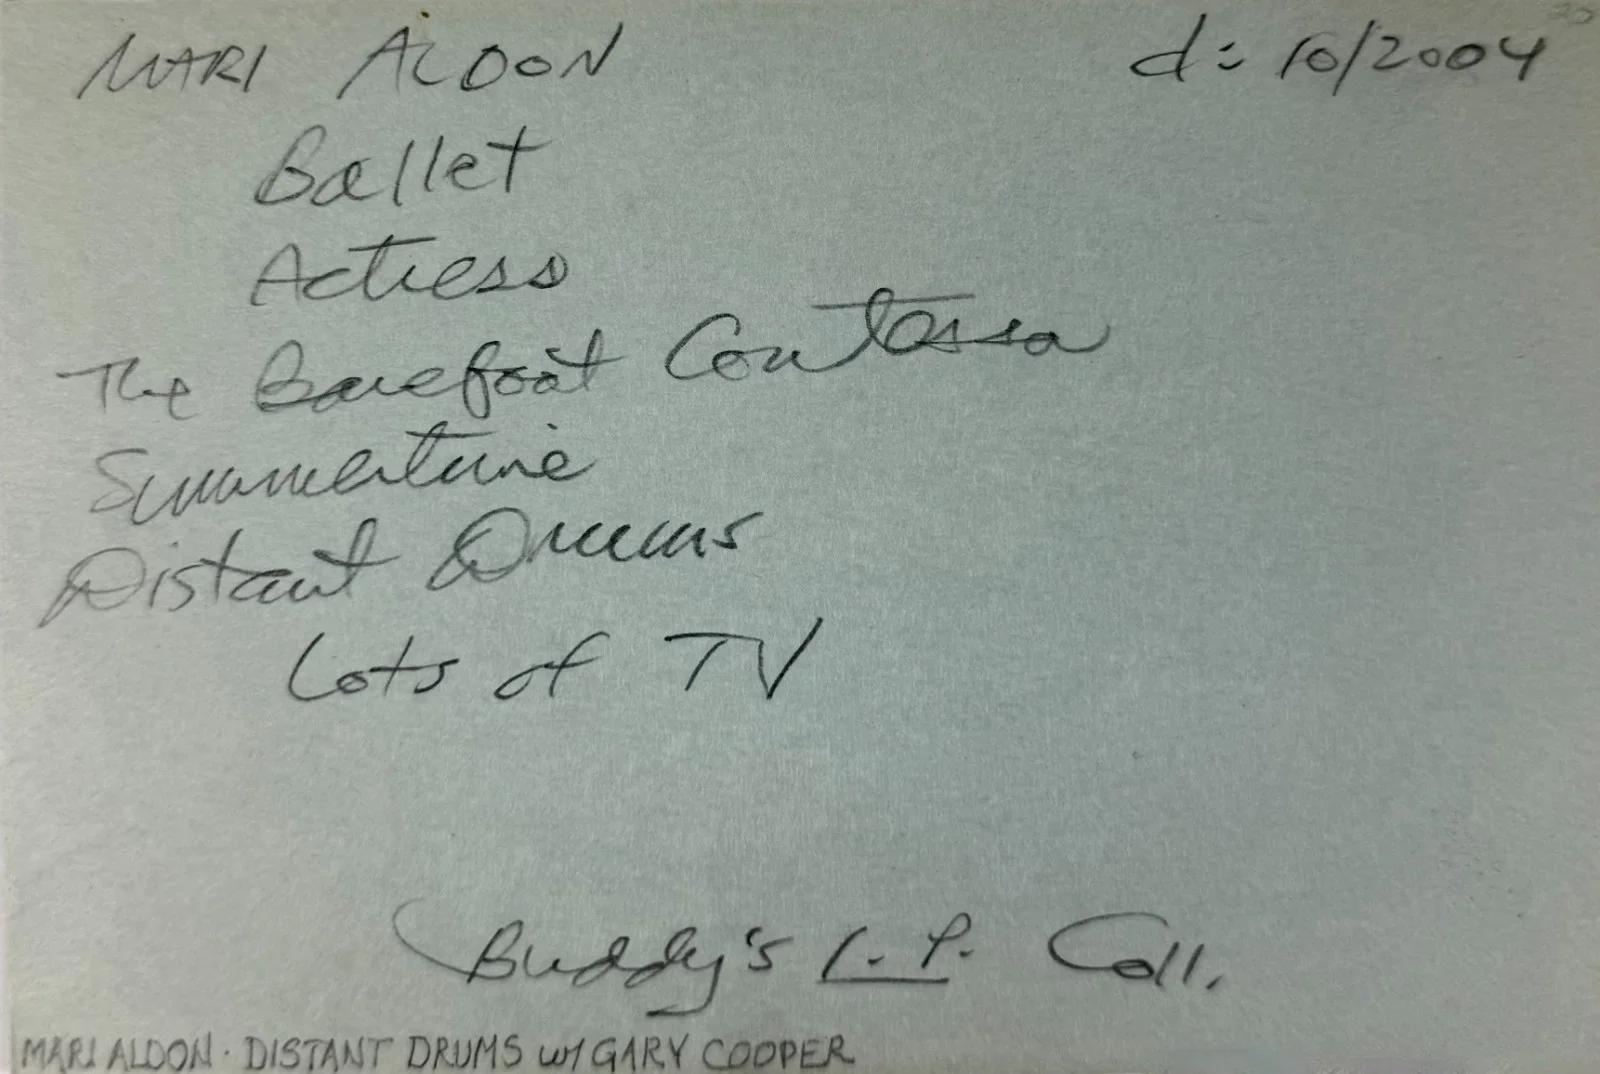 MARI ALDON d: 10/2004
Ballet
Actress
The Barefoot Contessa
Summertime
Distant Drums
Lots of TV
Buddy's L.P. Coll.
MARI ALDON · DISTANT DRUMS w/ GARY COOPER